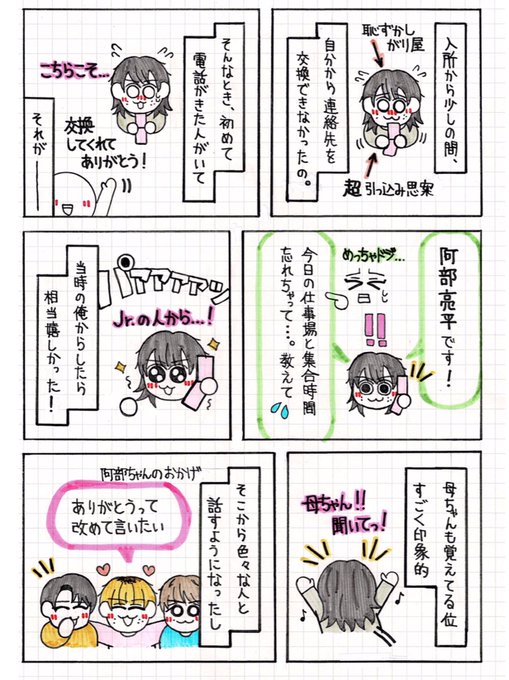 入所から少しの間、
自分から連絡先を
交換できなかったの。
恥ずかし
がり屋
超引っ込み思案
そんなとき、初めて
電話がきた人がいて
こちらこそ…
交換
してくれて
ありがとう！
それが――
阿部亮平です！
めっちゃドジ…
!!
今日の仕事場と集合時間
忘れちゃって…。教えて
パァァァァッ
Jr.の人から…！
当時の俺からしたら
相当嬉しかった！
母ちゃんも覚えてる位
すごく印象的
母ちゃん!!
聞いてっ！
そこから色々な人と
話すようになったし
阿部ちゃんのおかげ
ありがとうって
改めて言いたい